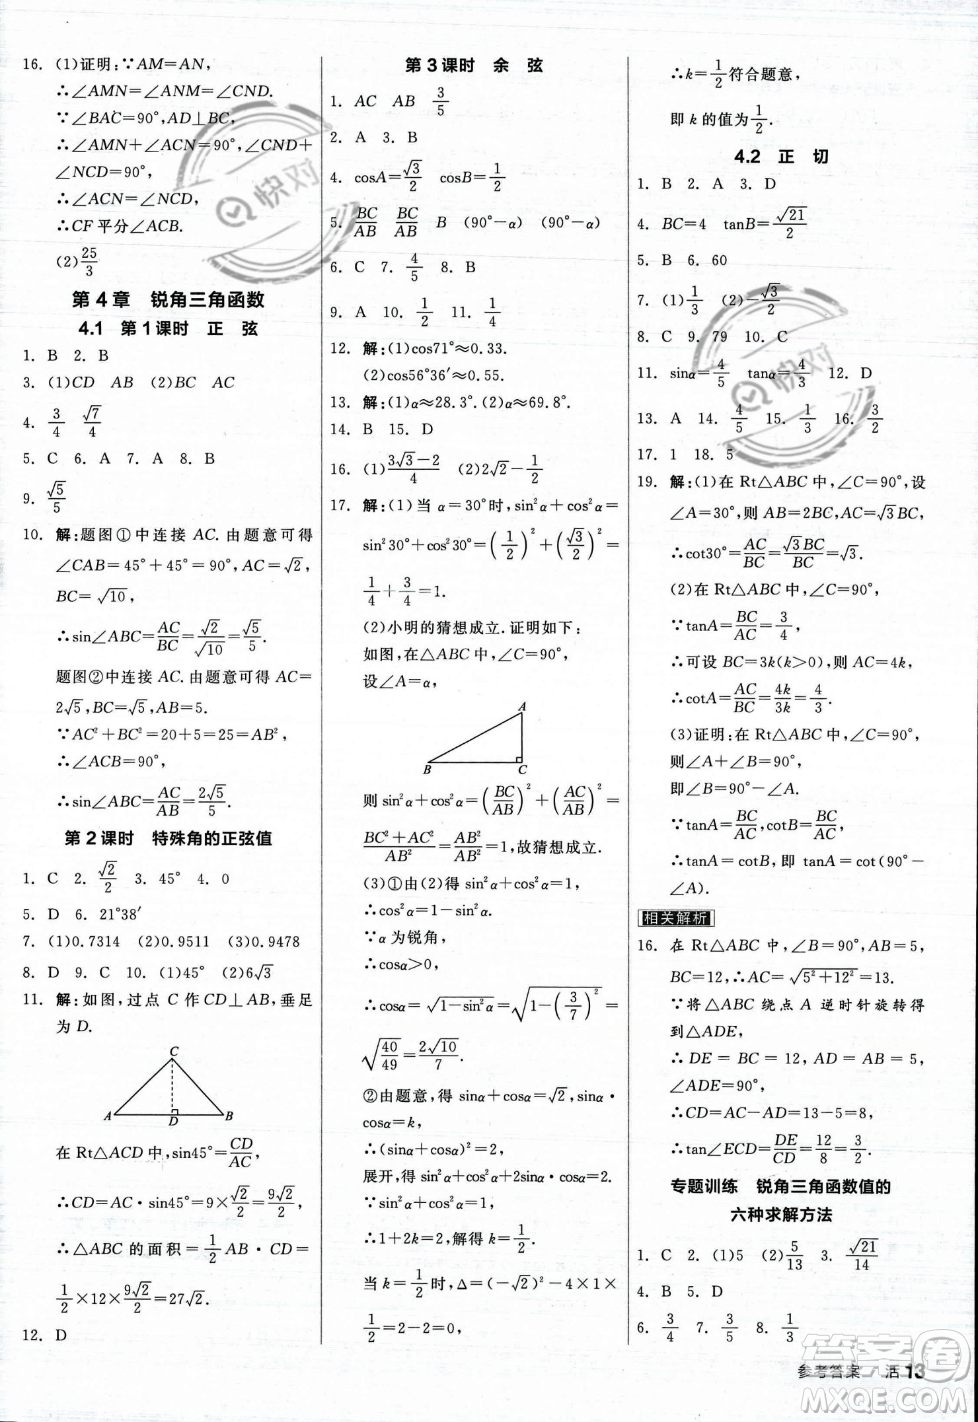 16. (1)证明:∵AM=AN,
∴∠AMN=∠ANM=∠CND.
∵∠BAC=90°,AD⊥BC,
∴∠AMN+∠ACN=90°,∠CND+
∠NCD=90°,
∴∠ACN=∠NCD,
∴CF平分∠ACB.
(2)25/3
第4章 锐角三角函数
4.1 第1课时 正 弦
1. B 2. B
3. (1)CD AB (2)BC AC
4. 3/4 √7/4
5. C 6. A 7. A 8. B
9. √5/5
10. 解:题图①中连接AC.由题意可得
∠CAB=45°+45°=90°,AC=√2,
BC=√10,
∴sin∠ABC=AC/BC=√2/√10=√5/5.
题图②中连接AC.由题意可得AC=
2√5,BC=√5,AB=5.
∵AC²+BC²=20+5=25=AB²,
∴∠ACB=90°,
∴sin∠ABC=AC/AB=2√5/5.
第2课时 特殊角的正弦值
1. C 2. √2/2 3. 45° 4. 0
5. D 6. 21°38′
7. (1)0.7314 (2)0.9511 (3)0.9478
8. D 9. C 10. (1)45° (2)6√3
11. 解:如图,过点C作CD⊥AB,垂足
为D.
C
A D B
在Rt△ACD中,sin45°=CD/AC,
∴CD=AC·sin45°=9×√2/2=9√2/2,
∴△ABC的面积=1/2AB·CD=
1/2×12×9√2/2=27√2.
12. D
第3课时 余 弦
1. AC AB 3/5
2. A 3. B
4. cosA=√3/2 cosB=1/2
5. BC/AB BC/AB B (90°-α) (90°-α)
6. C 7. 4/5 8. B
9. A 10. 1/2 11. 1/4
12. 解:(1)cos71°≈0.33.
(2)cos56°36′≈0.55.
13. 解:(1)α≈28.3°.(2)α≈69.8°.
14. B 15. D
16. (1)(3√3-2)/4 (2)2√2-1/2
17. 解:(1)当α=30°时,sin²α+cos²α=
sin²30°+cos²30°=(1/2)²+(√3/2)²=
1/4+3/4=1.
(2)小明的猜想成立.证明如下:
如图,在△ABC中,∠C=90°,
设∠A=α,
A
B C
则sin²α+cos²α=(BC/AB)²+(AC/AB)²=
(BC²+AC²)/AB²=AB²/AB²=1,故猜想成立.
(3)①由(2)得sin²α+cos²α=1,
∴cos²α=1-sin²α.
∵α为锐角,
∴cosα>0,
∴cosα=√(1-sin²α)=√(1-(3/7)²)=
√(40/49)=2√10/7.
②由题意,得sinα+cosα=√2,sinα·
cosα=k,
∴(sinα+cosα)²=2,
展开,得sin²α+cos²α+2sinα·cosα=2.
∴1+2k=2,
∴k=1/2.
当k=1/2时,Δ=(-√2)²-4×1×
1/2=2-2=0,
∴k=1/2符合题意,
即k的值为1/2.
4.2 正 切
1. B 2. A 3. D
4. BC=4 tanB=√21/2
5. B 6. 60
7. (1)1/3 (2)-√3/3
8. C 9. 79 10. B
11. sinα=4/5 tanα=4/3 12. D
13. A 14. 4/5 15. 1/3 16. 3/2
17. 1 18. 5
19. 解:(1)在Rt△ABC中,∠C=90°,设
∠A=30°,则AB=2BC,AC=√3BC,
∴cot30°=AC/BC=√3BC/BC=√3.
(2)在Rt△ABC中,∠C=90°,
∵tanA=BC/AC=3/4,
∴可设BC=3k(k>0),则AC=4k,
∴cotA=AC/BC=4k/3k=4/3.
(3)证明:在Rt△ABC中,∠C=90°,
则∠A+∠B=90°,
即∠B=90°-∠A.
∵tanA=BC/AC,cotB=BC/AC,
∴tanA=cotB,即tanA=cot(90°-
∠A).
相关解析
16. 在Rt△ABC中,∠B=90°,AB=5,
BC=12,∴AC=√(5²+12²)=13.
∵将△ABC绕点A逆时针旋转得
到△ADE,
∴DE=BC=12,AD=AB=5,
∠ADE=90°,
∴CD=AC-AD=13-5=8,
∴tan∠ECD=DE/CD=12/8=3/2.
专题训练 锐角三角函数值的
六种求解方法
1. C 2. (1)5 (2)5/13 3. √21/14
4. B 5. D
6. 3/4 7. 3/5 8. 1/3
参考答案 活 13
快对
快对
答案圈
MXQE.COM